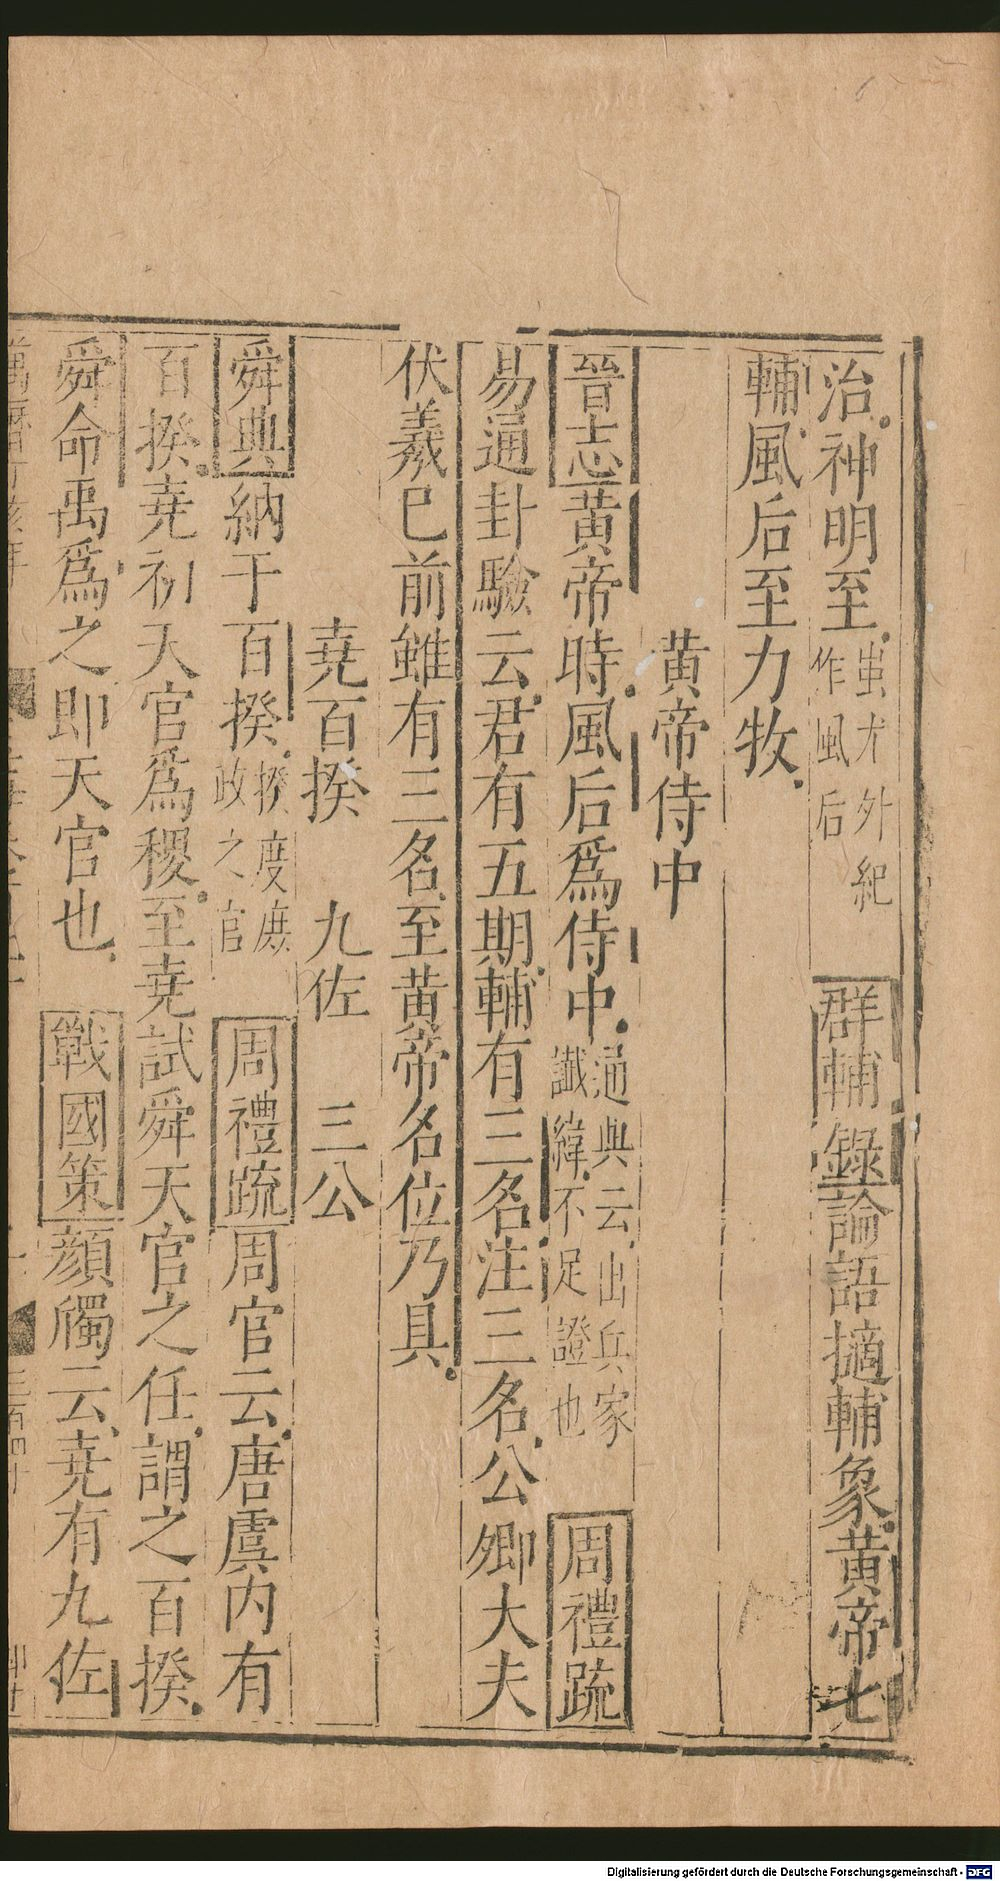 治神明至蚩尤外紀作風后群輔錄論語擿輔象黃帝七
輔風后至力牧
黃帝侍中
晉志黃帝時風后爲侍中通典云出兵家讖緯不足證也周禮疏
易通卦驗云君有五期輔有三名注三名公卿大夫
伏羲已前雖有三名至黃帝名位乃具
堯百揆 九佐 三公
舜典納于百揆揆度庶政之官周禮疏周官云唐虞內有
百揆堯初天官爲稷至堯試舜天官之任謂之百揆
舜命禹爲之即天官也戰國策顏斶云堯有九佐
Digitalisierung gefördert durch die Deutsche Forschungsgemeinschaft - DFG